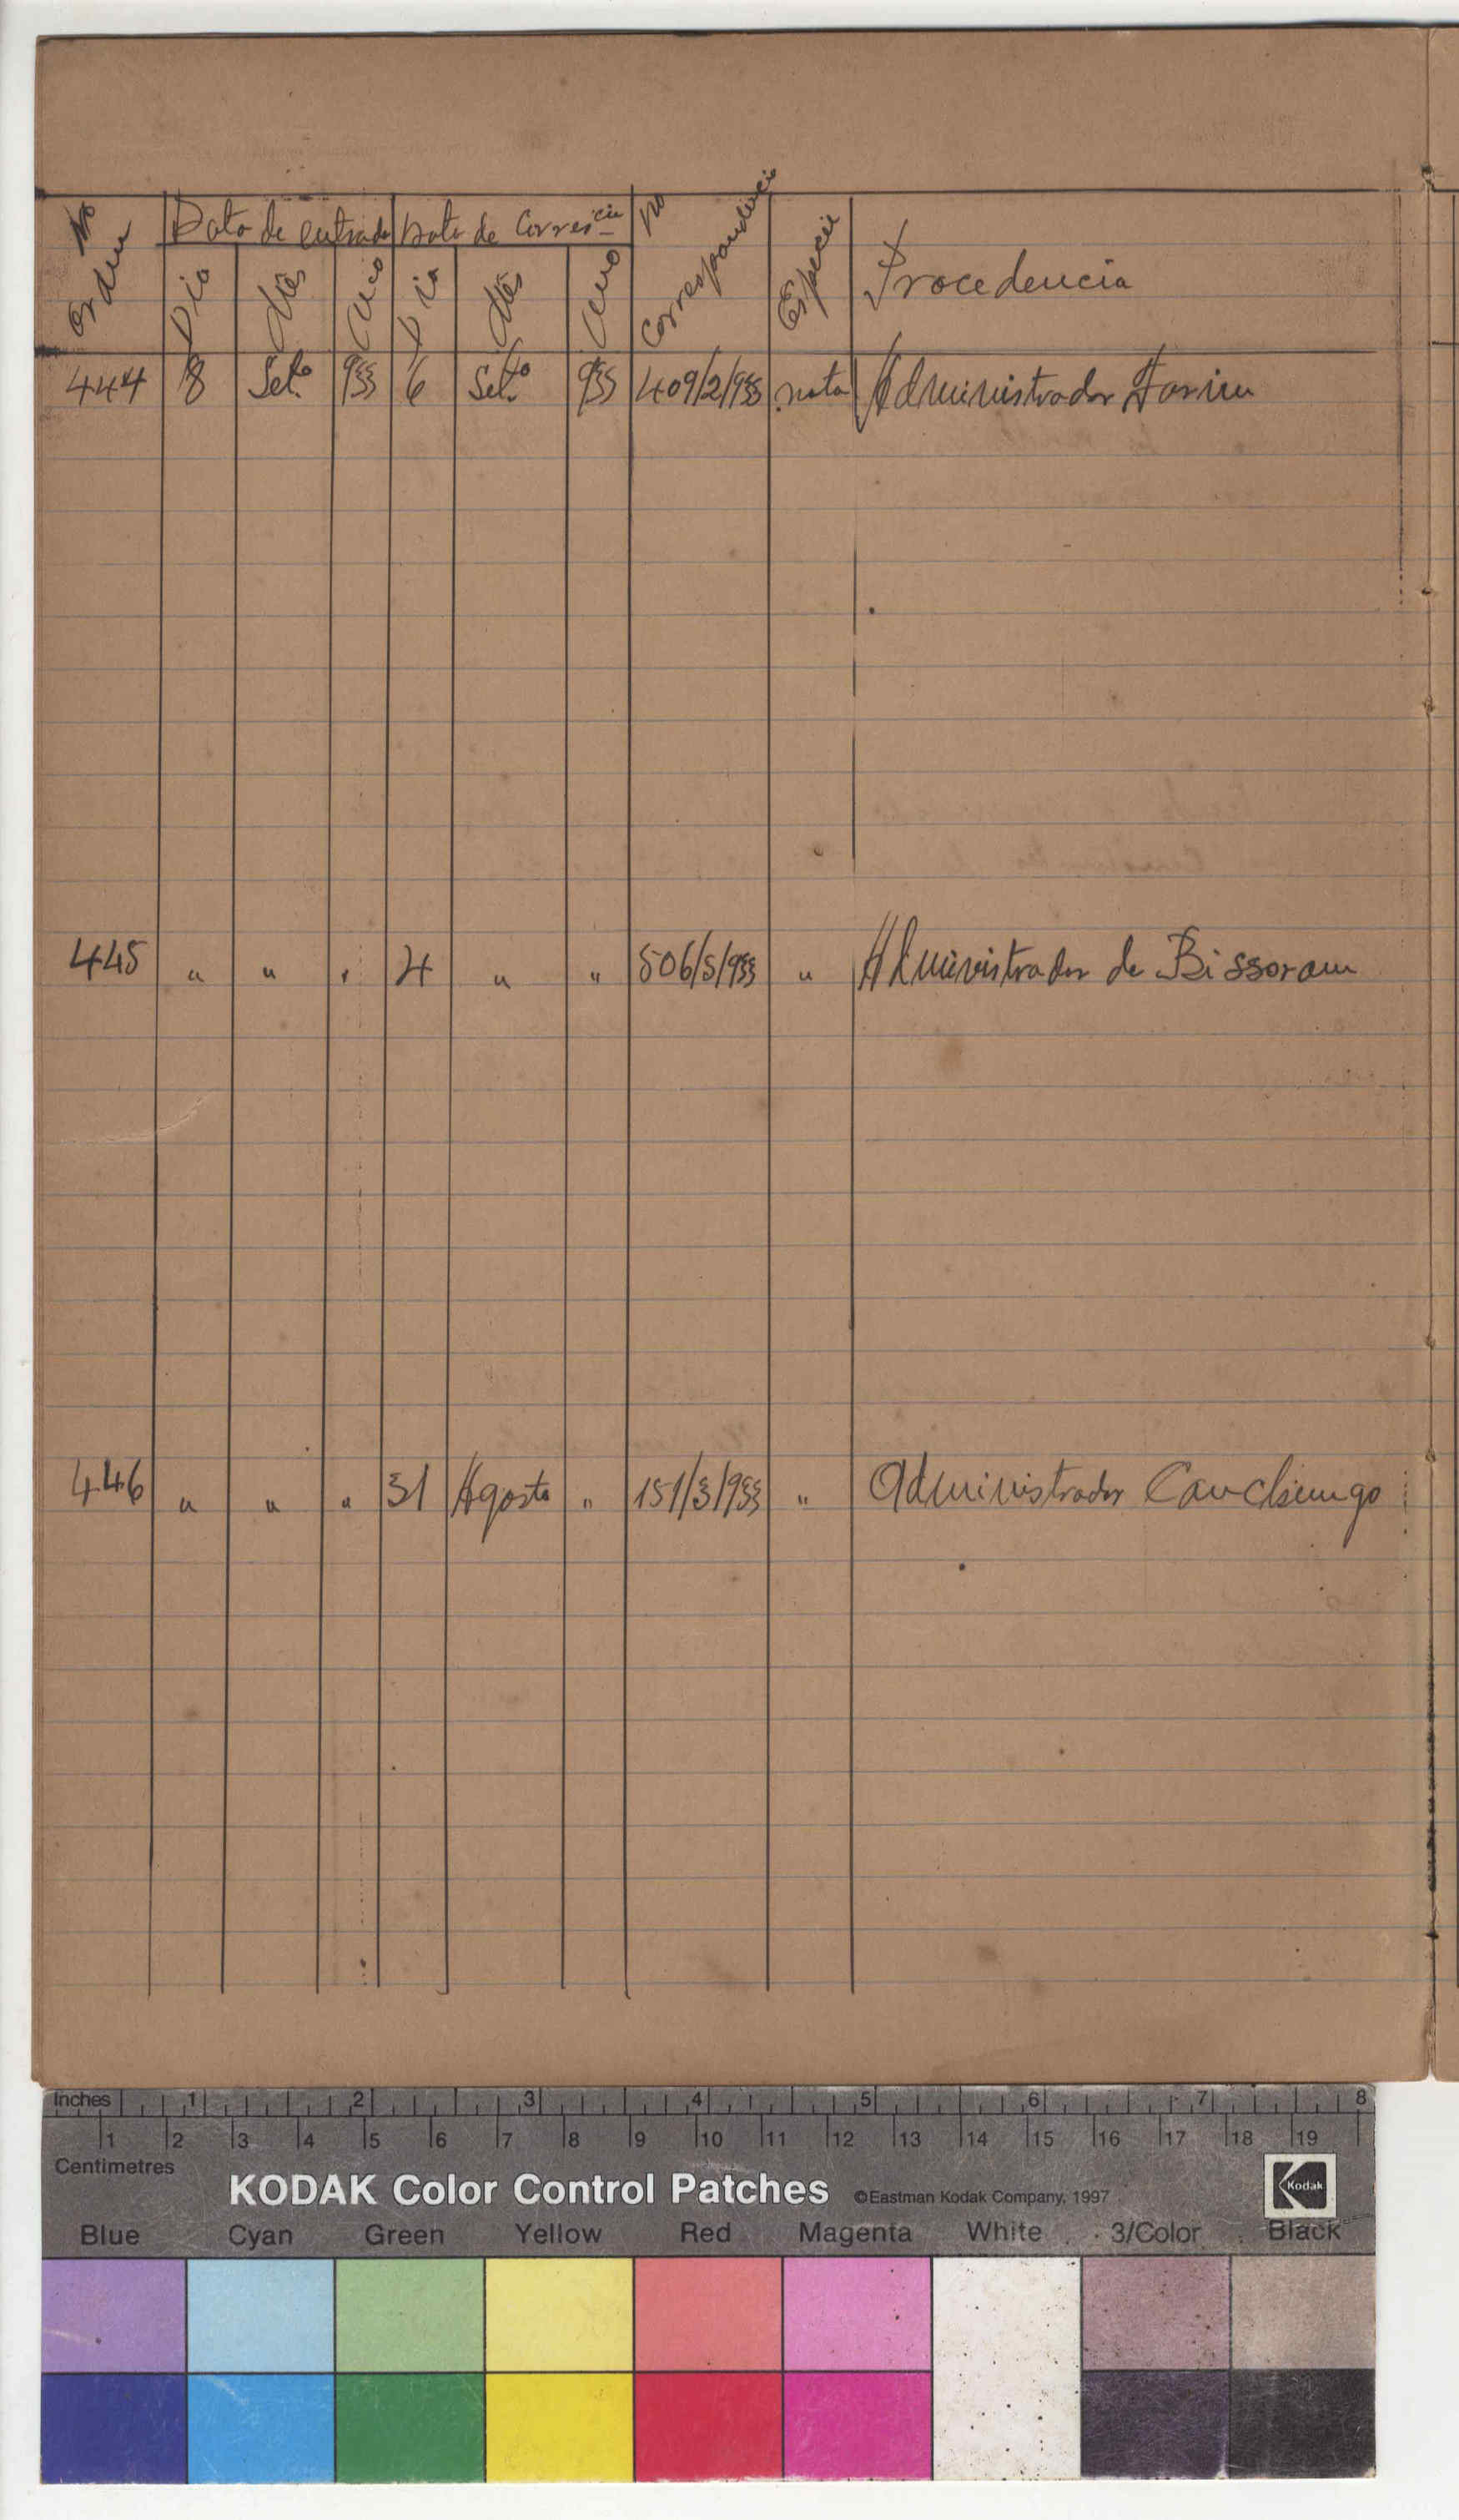 Nº Ordem | Data de entrada | Data de Corresᶜⁱᵃ | Nº Correspondencia | Especie | Procedencia
Dia | Mês | Ano | Dia | Mês | Ano
444 | 8 | Setº | 933 | 6 | Setº | 933 | 409/2/933 | nota | Administrador Farim
445 | " | " | " | 4 | " | " | 506/5/933 | " | Administrador de Bissoram
446 | " | " | " | 31 | Agosto | " | 151/3/933 | " | Administrador Canchungo
Inches 1 2 3 4 5 6 7 8
1 2 3 4 5 6 7 8 9 10 11 12 13 14 15 16 17 18 19
Centimetres
KODAK Color Control Patches ©Eastman Kodak Company, 1997 Kodak
Blue Cyan Green Yellow Red Magenta White 3/Color Black